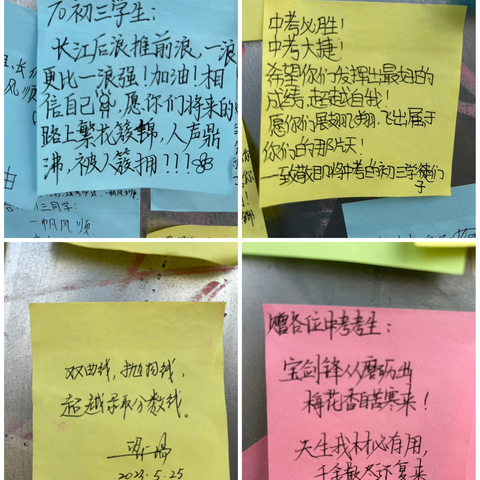 石初三学生:
长江后浪推前浪,一浪
更比一浪强!加油!相
信自己,愿你们将来的
路上繁花簇锦,人声鼎
沸,被人簇拥???
三月学:
一帆风顺
中考必胜!
中考大捷!
希望你们发挥出最好的
成绩,超越自我!
愿你们展翅飞翔,飞出属于
你们的那片天!
一致敬即将中考的初三学徒们
子
双曲线,抛物线,
超越录取分数线。
2023.5.25
赠各位中考考生:
宝剑锋从磨砺出
梅花香自苦寒来!
天生我材必有用,
千金散尽还复来